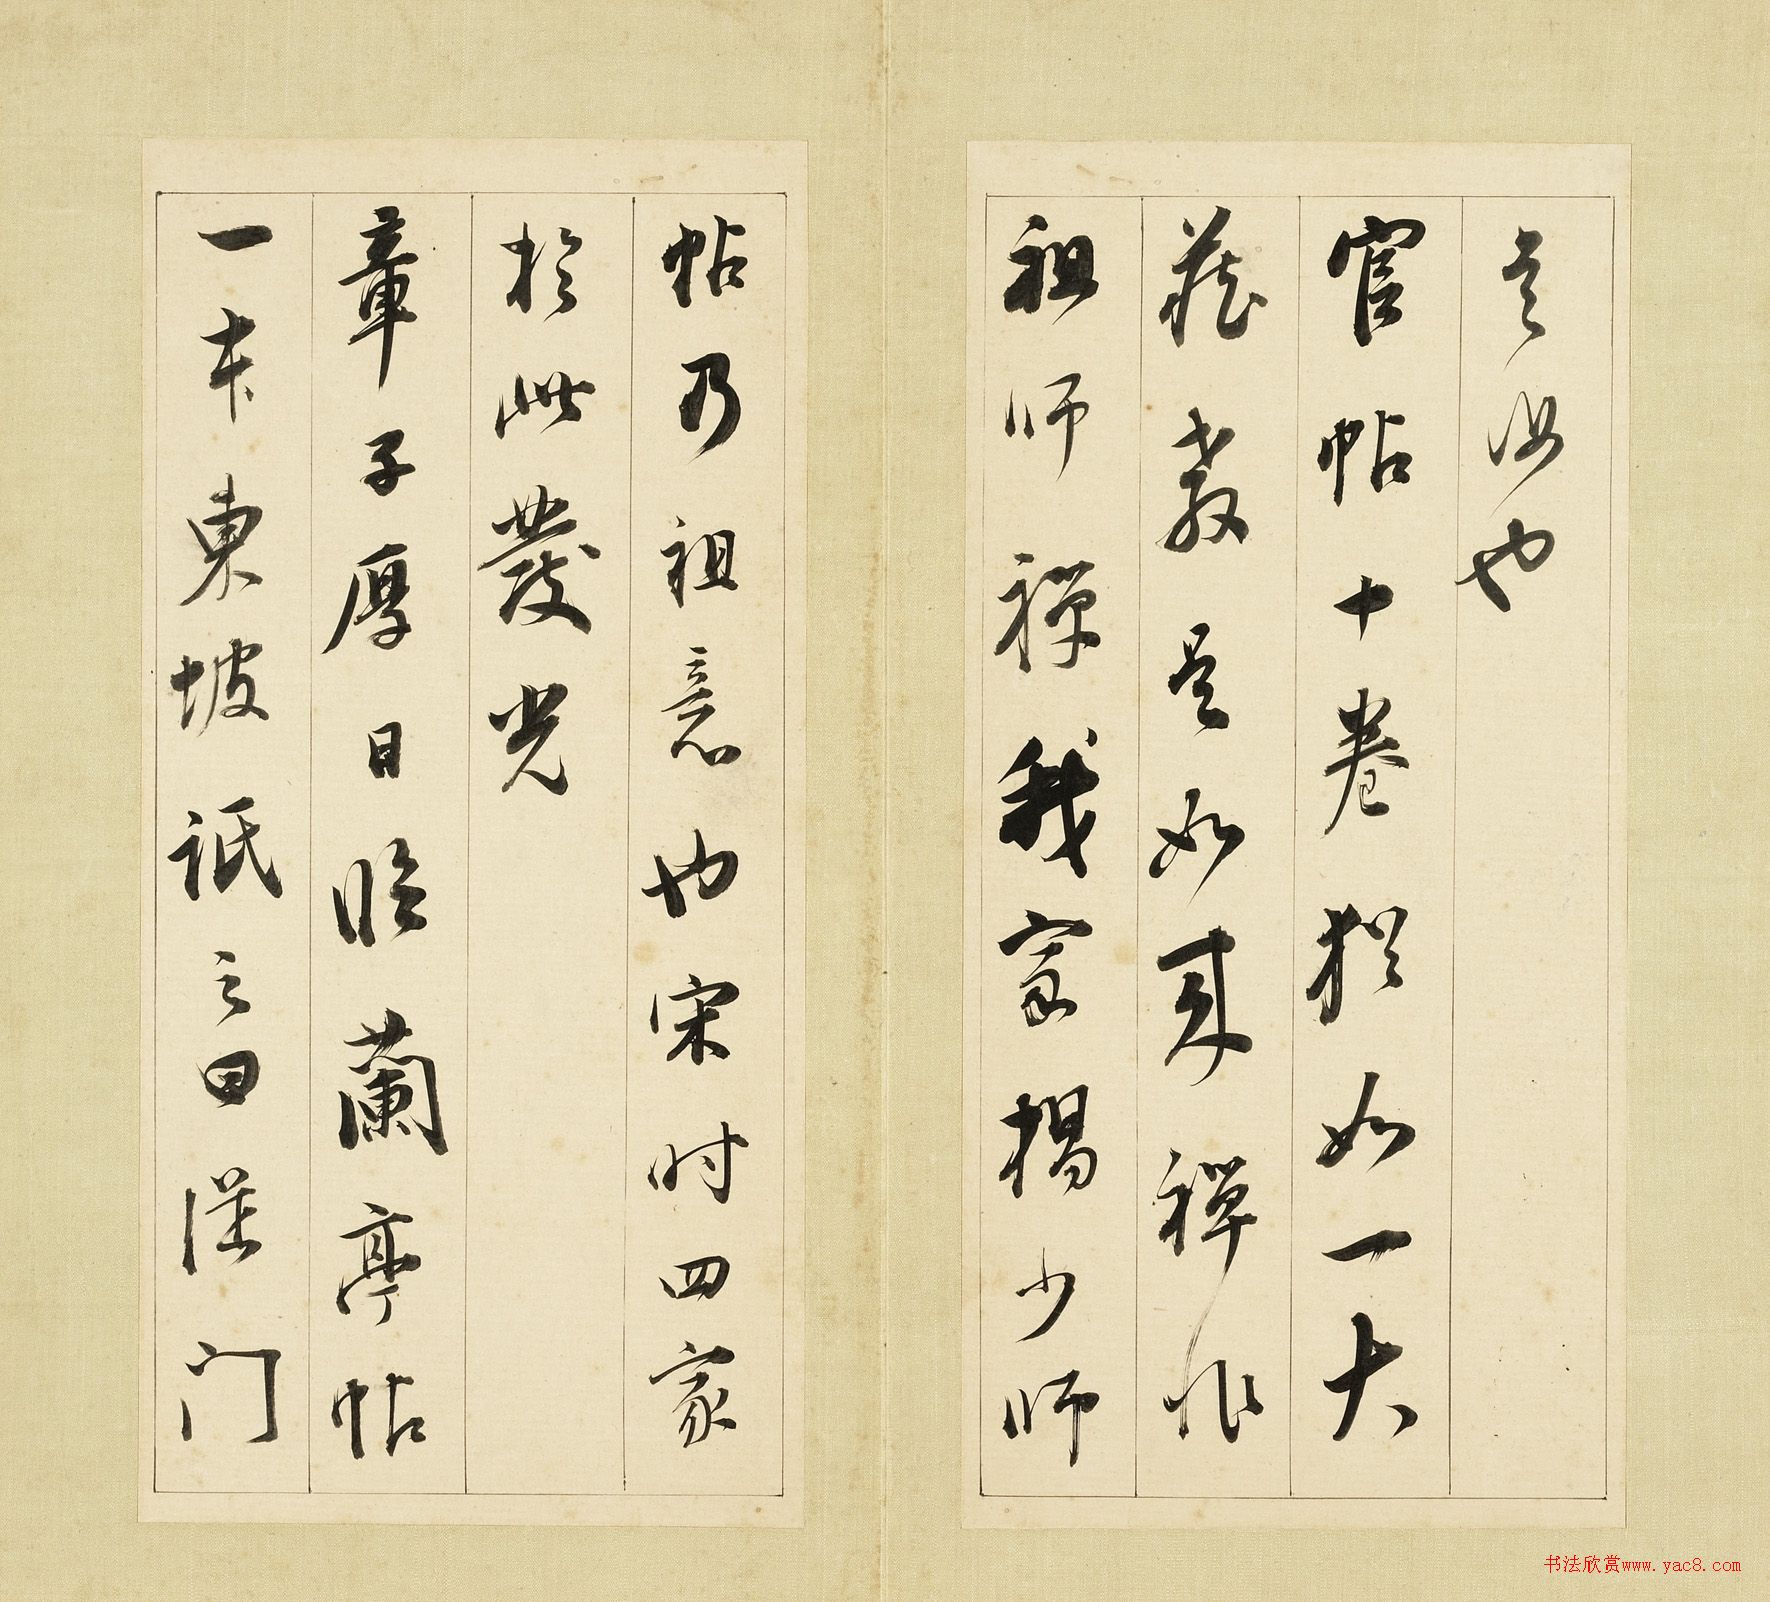 是汝也
官帖十卷猶如一大
藏教是如來禪惟
祖師禪我家楊少師
帖乃祖意也宋时四家
於此發光
章子厚日临蘭亭帖
一本東坡詆之曰從門
书法欣赏www.yac8.com